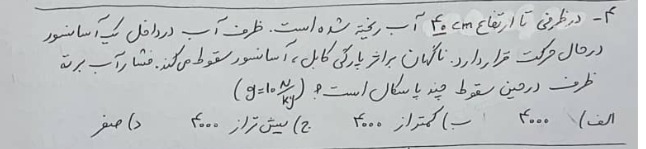 ۴- در ظرفی تا ارتفاع ۴۰ cm آب ریخته شده است. ظرف آب در داخل یک آسانسور
در حال حرکت قرار دارد. ناگهان براثر پارگی کابل، آسانسور سقوط می‌کند. فشار آب بر ته
ظرف در حین سقوط چند پاسکال است؟ (g=۱۰ N/kg)
الف) ۴۰۰۰ ب) کمتر از ۴۰۰۰ ج) بیش‌تر از ۴۰۰۰ د) صفر